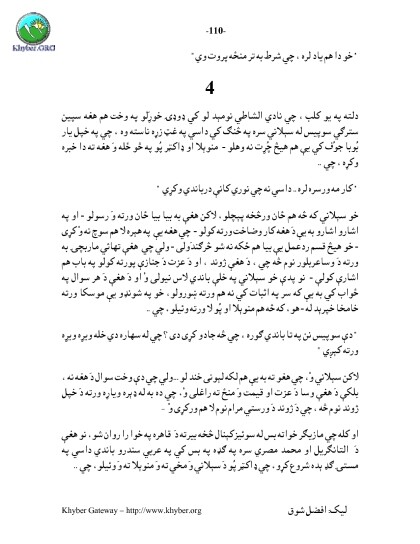 -110-
Khyber.ORG
"خو دا هم ياد لره ، چي شرط به تر منځه پروت وي"
4
دلته په يو کلب ، چي نادي الشاطي نوميد لو کي ډوډۍ خوړلو په وخت هم هغه سپين
سترګي سوپيس له سبلاني سره په څنګ کي داسي په غټ زړه ناسته وه ، چي په خپل يار
يې هم هيڅ چُرت نه وهلو - منوېلا او ډاکټر پُو په څو ځله وَ هغه ته دا خبره
وکړه ، چي ..
"کار مه ورسره لره .. داسي نه چي نوري کاڼې درباندي وکړي"
خو سبلاني که څه هم ځان ورڅخه پېچلو ، لاکن هغې به بيا بيا ځان ورته وَ رسولو - او په
اشارو اشارو به يې دَ هغه کار وضاحت ورته کولو - چي هغه يې په هېره لا هم سوچ نه وُکړی
- خو هيڅ قسم ردعمل يې بيا هم ځکه نه شو څرګندولی - ولي چي هغې تهائي ماريجي به
ورته دَ سا عريلور نوم څه چي ، دَ هغې ژوند ، او دَ عزت دَ جنازې پورته کولو په باب هم
اشارې کولې - نو پدې خو سبلاني په خُلې باندي لاس نيولی وُ او دَ هغې دَ هر سوال په
ځواب کي به يې که سر په اثبات کي نه هم ورته ښورولو ، خو په شونډو يې موسکا ورته
خامخا خپرېد له - هو ، که څه هم منوېلا او پُو لا ورته وئيلو ، چي ..
"دې سوپيس نن په تا باندي ګوره ، چي څه جادو کړی دی ؟ چي له سهاره دې خله ويړه ويړه
ورته کيږي"
لاکن سبلاني وُ ، چي هغو ته به يې هم لکه ليونی خندلو ... ولي چي دې وخت سوال دَ هغه نه ،
بلکي دَ هغې وسا دَ عزت او قيمت وَ منځ ته راغلی وُ ، چي ده به له ډېره وياړه ورته دَ خپل
ژوند نوم څه ، چي دَ ژوند دَ ورستي مرام نوم لا هم ورکړی وُ -
او کله چي مازيګر خوا ته بس له سوئيز کېنال څخه بېرته دَ قاهره په خوا را روان شو ، نو هغې
دَ التانګريل او محمد مصري سره په ګډه په بس کي په عربي سندرو باندي داسي په
مستۍ ګډېده شروع کړه ، چي ډاکټر پُو دَ سبلاني وَ مخي ته وَ منوېلا ته وَ وئيلو ، چي ..
Khyber Gateway – http://www.khyber.org
ليک: افضل شوق